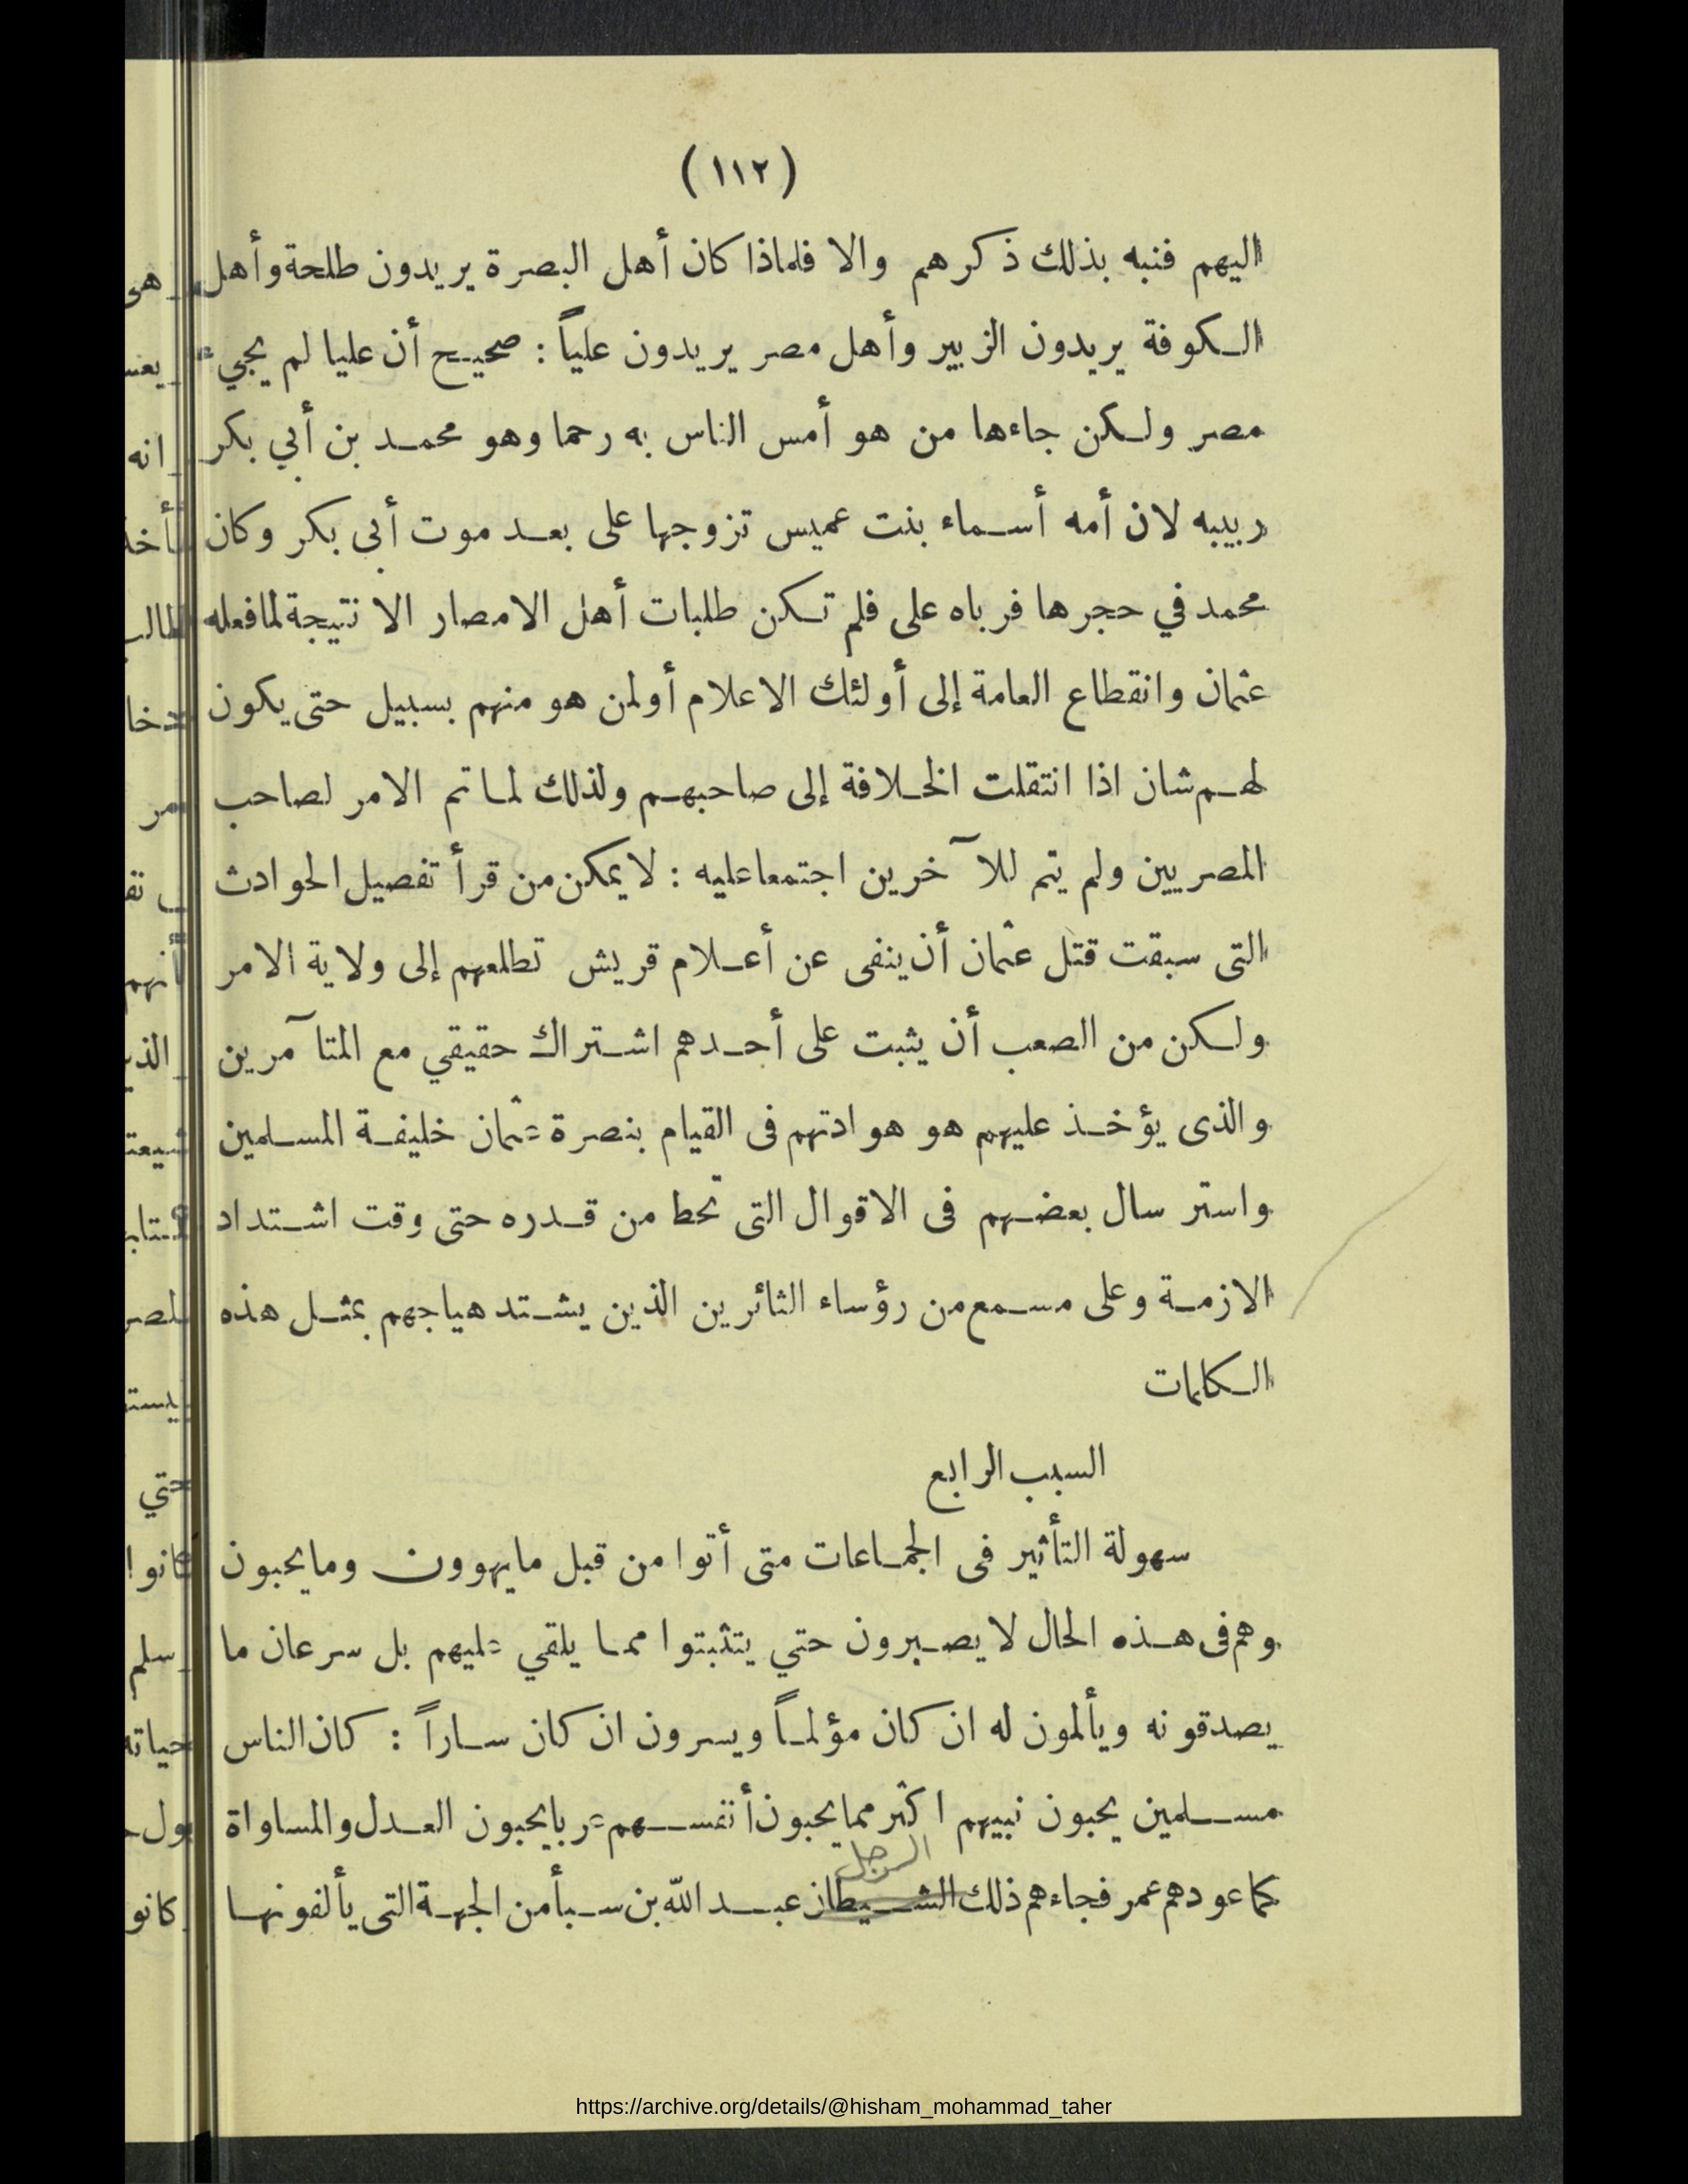 (١١٢)
اليهم فنبه بذلك ذكرهم والا فلماذا كان أهل البصرة يريدون طلحة وأهل
الكوفة يريدون الزبير وأهل مصر يريدون علياً : صحيح أن عليا لم يجيء
مصر ولكن جاءها من هو أمس الناس به رحما وهو محمد بن أبي بكر
ربيبه لان أمه أسماء بنت عميس تزوجها على بعد موت أبى بكر وكان
محمد في حجرها فرباه على فلم تكن طلبات أهل الامصار الا نتيجة لما فعله
عثمان وانقطاع العامة إلى أولئك الاعلام أو لمن هو منهم بسبيل حتى يكون
لهم شان اذا انتقلت الخلافة إلى صاحبهم ولذلك لما تم الامر لصاحب
المصريين ولم يتم للآخرين اجتمعا عليه : لا يمكن من قرأ تفصيل الحوادث
التى سبقت قتل عثمان أن ينفى عن أعلام قريش تطلعهم إلى ولاية الامر
ولكن من الصعب أن يثبت على أحدهم اشتراك حقيقي مع المتآمرين
والذى يؤخذ عليهم هو هوادتهم فى القيام بنصرة عثمان خليفة المسلمين
واسترسال بعضهم فى الاقوال التى تحط من قدره حتى وقت اشتداد
الازمة وعلى مسمع من رؤساء الثائرين الذين يشتد هياجهم بمثل هذه
الكلمات
السبب الرابع
سهولة التأثير فى الجماعات متى أتوا من قبل ما يهوون وما يحبون
وهم فى هذه الحال لا يصبرون حتي يتثبتوا مما يلقي عليهم بل سرعان ما
يصدقونه ويألمون له ان كان مؤلماً ويسرون ان كان ساراً : كان الناس
مسلمين يحبون نبيهم اكثر مما يحبون أنفسهم عربا يحبون العدل والمساواة
الرجل
كما عودهم عمر فجاءهم ذلك الشيطان عبد الله بن سبأ من الجهة التى يألفونها
https://archive.org/details/@hisham_mohammad_taher